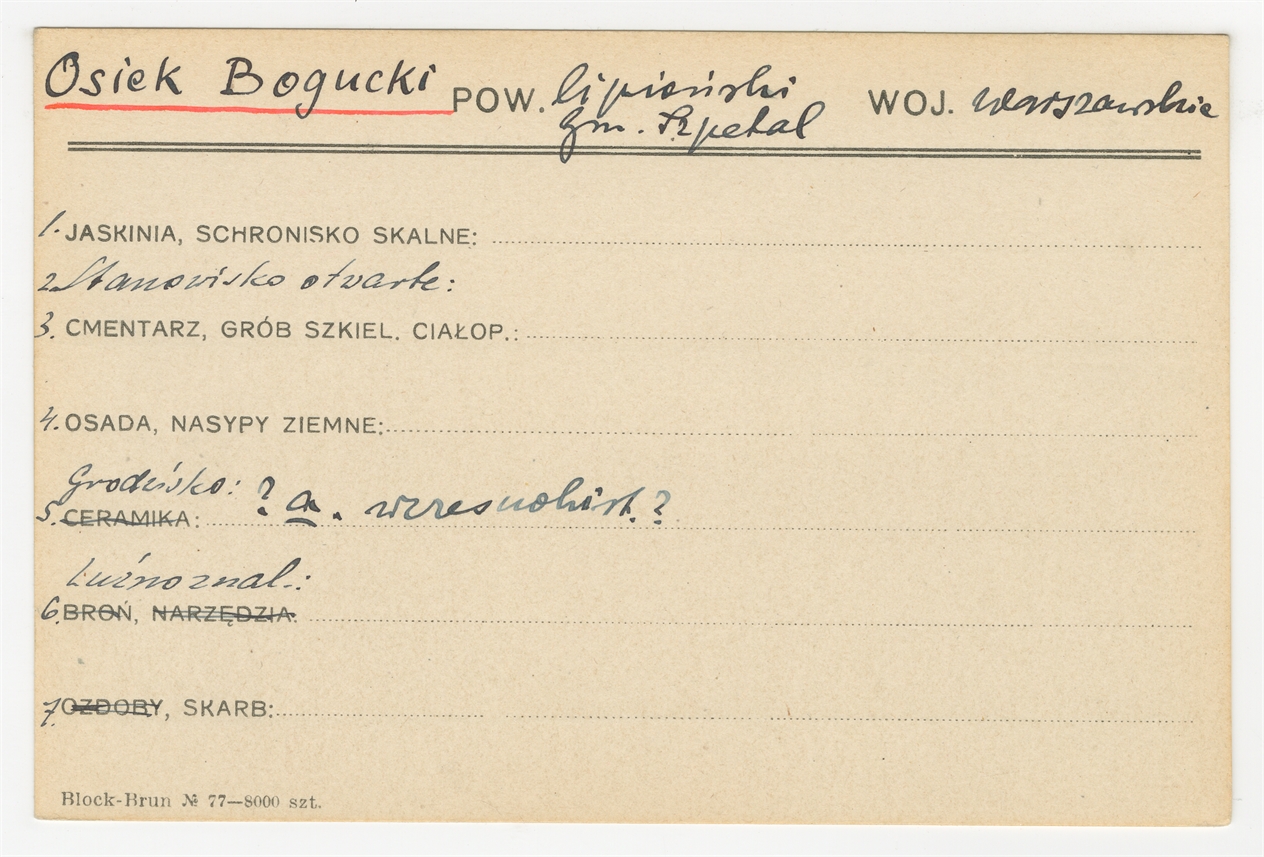 Osiek Bogucki POW. lipieński WOJ. warszawskie
gm. Szpetal
1. JASKINIA, SCHRONISKO SKALNE:
2. Stanowisko otwarte:
3. CMENTARZ, GRÓB SZKIEL. CIAŁOP.:
4. OSADA, NASYPY ZIEMNE:
Grodzisko: ? a. wczesnohist. ?
5. CERAMIKA:
Luźno znal.:
6. BROŃ, NARZĘDZIA:
7. OZDOBY, SKARB:
Block-Brun № 77—8000 szt.